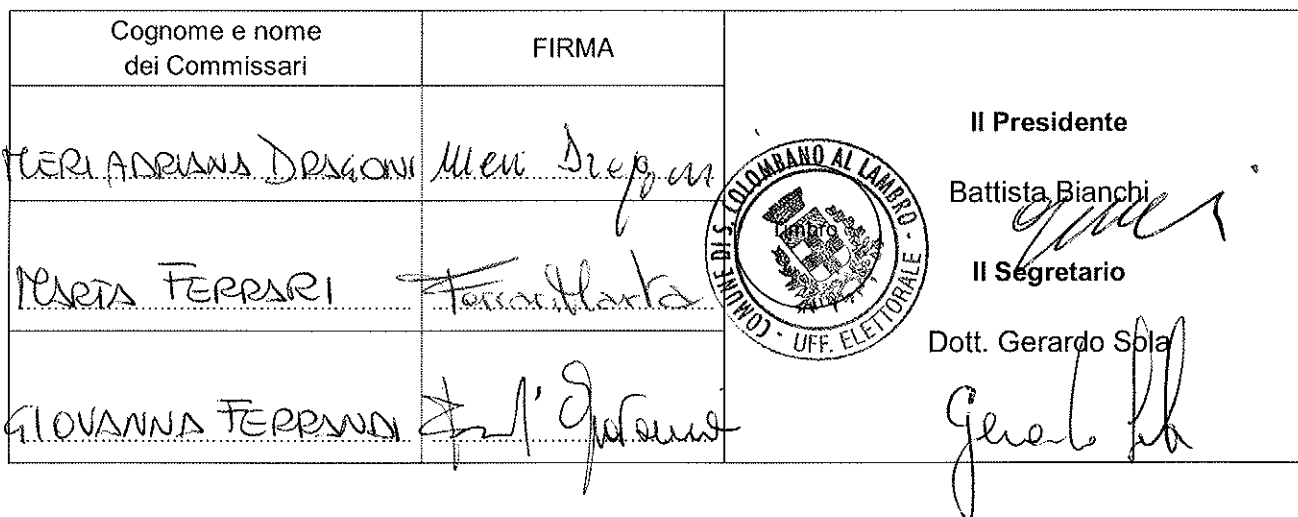 Cognome e nome
dei Commissari
FIRMA
MERI ADRIANA DRAGONI
Meri Dragoni
MARTA FERRARI
Ferrari Marta
GIOVANNA FERRANDI
Giovanna
COMUNE DI S. COLOMBANO AL LAMBRO - UFF. ELETTORALE
Timbro
Il Presidente
Battista Bianchi
Il Segretario
Dott. Gerardo Sola
Gerardo Sola